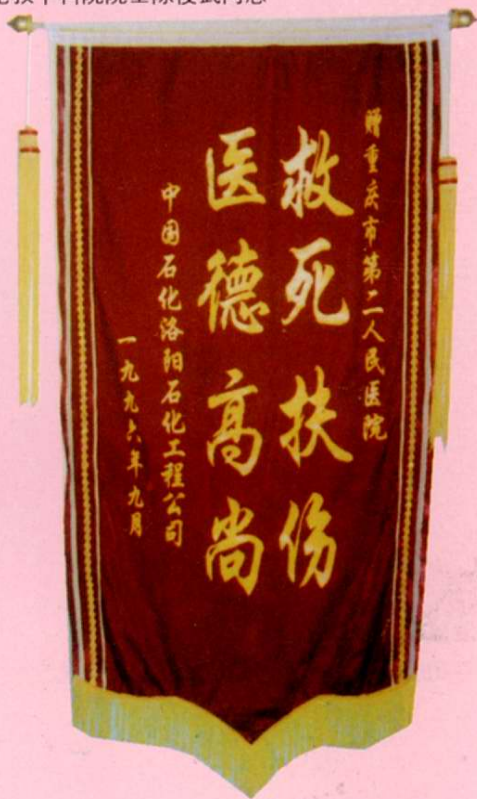 赠重庆市第二人民医院
救死扶伤
医德高尚
中国石化洛阳石化工程公司
一九九六年九月